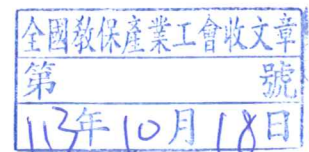 全國教保產業工會收文章
第 號
113年10月18日